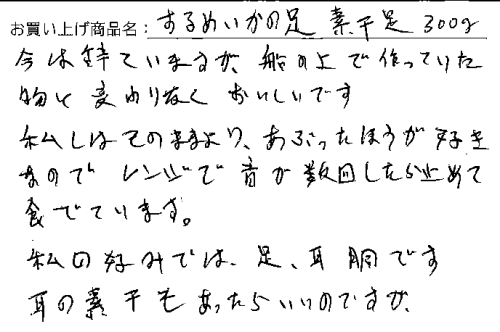 お買い上げ商品名：するめいかの足 素干足 300g
今は辞ていますが、船の上で作っていた
物と変わりなく おいしいです
私しはそのままより、あぶったほうが好き
なので レンジで音が数回したら止めて
食べています。
私の好みでは、足、耳 胴です
耳の素干もあったらいいのですが、